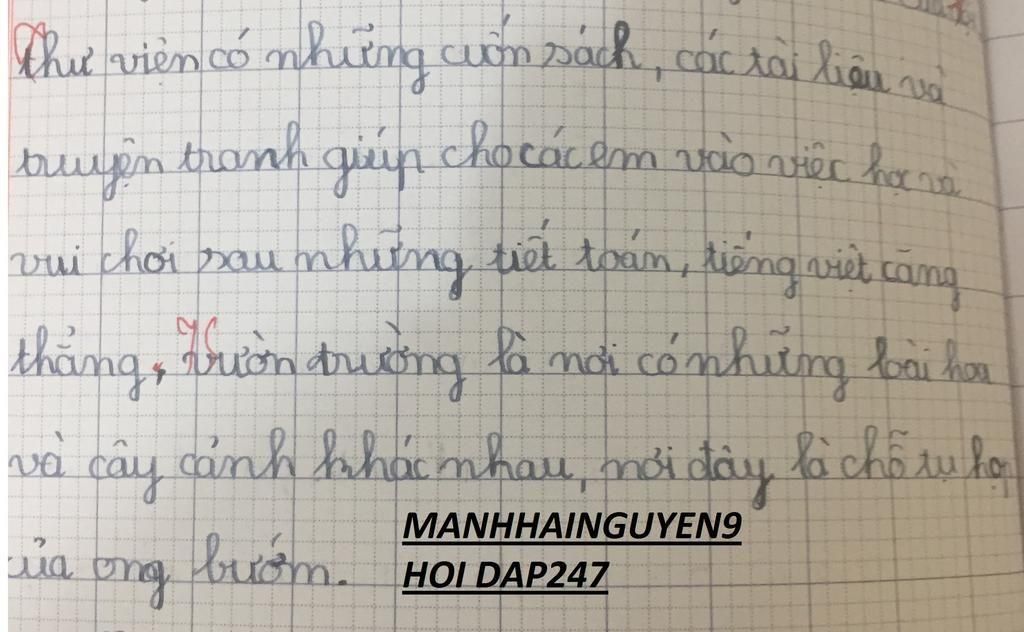 Thư viện có những cuốn sách, các tài liệu và
truyện tranh giúp cho các em vào việc học và
vui chơi sau những tiết toán, tiếng việt căng
thẳng, Vườn trường là nơi có những loài hoa
và cây cảnh khác nhau, nơi đây là chỗ tụ họp
của ong bướm.
MANHHAINGUYEN9
HOI DAP247